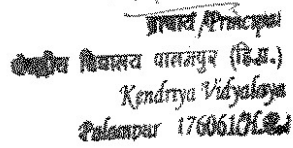 प्राचार्य/Principal
केन्द्रीय विद्यालय पालमपुर (हि.प्र.)
Kendriya Vidyalaya
Palampur 176061(H.P.)